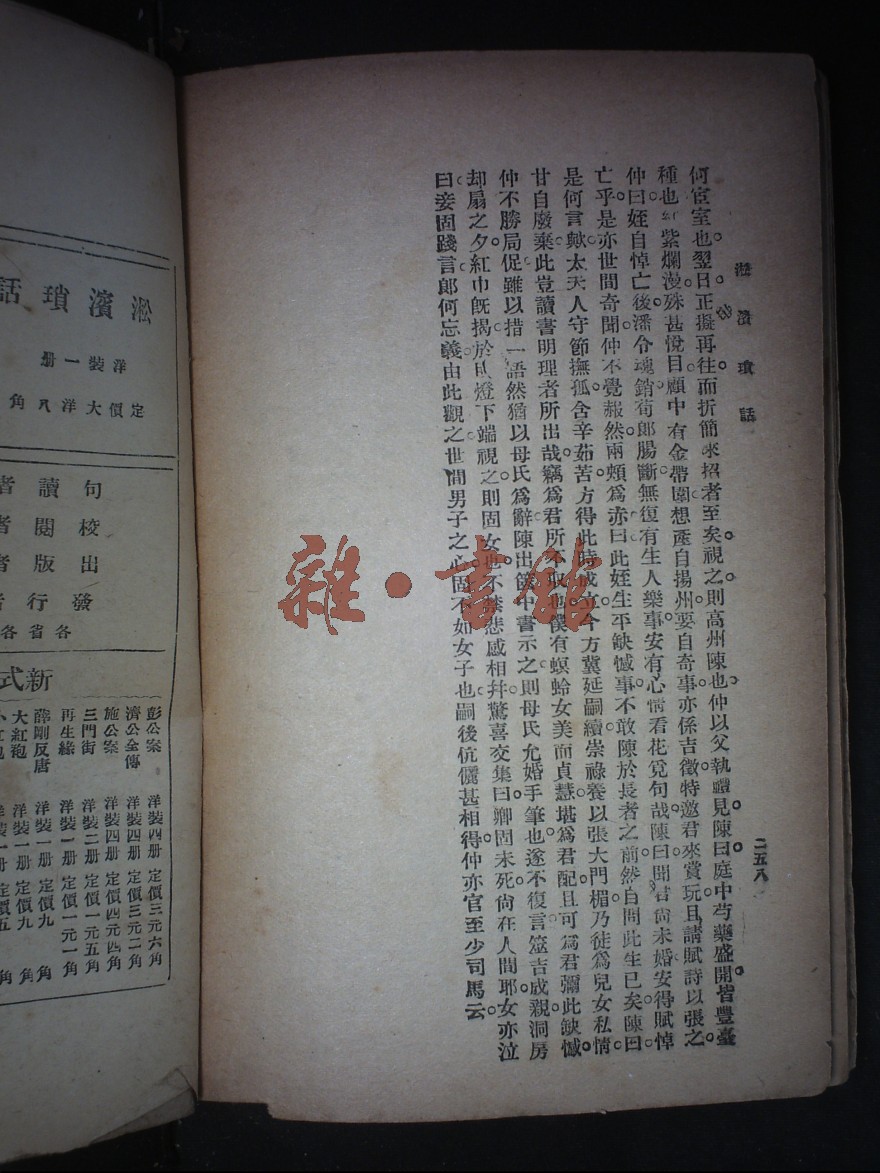 淞濱瑣話
二五八
何宦室也。翌日正擬再往。而折簡來招者至矣。視之。則高州陳也。仲以父執禮見。陳曰。庭中芍藥盛開。皆豐臺
種也。紅紫爛漫。殊甚悅目。顧中有金帶圍。想產自揚州。要自奇事。亦係吉徵。特邀君來賞玩。且請賦詩以張之。
仲曰。姪自悼亡後。潘令魂銷。荀郎腸斷。無復有生人樂事。安有心情看花覓句哉。陳曰。聞君尚未婚。安得賦悼
亡乎。是亦世間奇聞。仲不覺赧然。兩頰為赤。曰。此姪生平缺憾事。不敢陳於長者之前。然自問此生已矣。陳曰。
是何言歟。太夫人守節撫孤。含辛茹苦。方得此時成立。今方冀延嗣續。崇祿養。以張大門楣。乃徒為兒女私情。
甘自廢棄。此豈讀書明理者所出哉。竊為君所不取也。僕有螟蛉女。美而貞慧。堪為君配。且可為君彌此缺憾。
仲不勝局促。雖以措一語。然猶以母氏為辭。陳出篋中書示之。則母氏允婚手筆也。遂不復言。筮吉成親。洞房
却扇之夕。紅巾既揭。於銀燈下端視之。則固女也。不禁悲感相并。驚喜交集。曰。卿固未死。尚在人間耶。女亦泣
曰。妾固踐言。郎何忘義。由此觀之。世間男子之心。固不如女子也。嗣後伉儷甚相得。仲亦官至少司馬云。
淞濱瑣話
洋裝一册
定價大洋八角
句讀者
校閱者
出版者
發行者
各省各
新式
彭公案 洋裝四册 定價三元六角
濟公全傳 洋裝四册 定價三元二角
施公案 洋裝四册 定價四元四角
三門街 洋裝二册 定價一元五角
再生緣 洋裝一册 定價一元一角
薛剛反唐 洋裝一册 定價九角
大紅袍 洋裝一册 定價九角
小紅袍 洋裝一册 定價五角
雜·書館